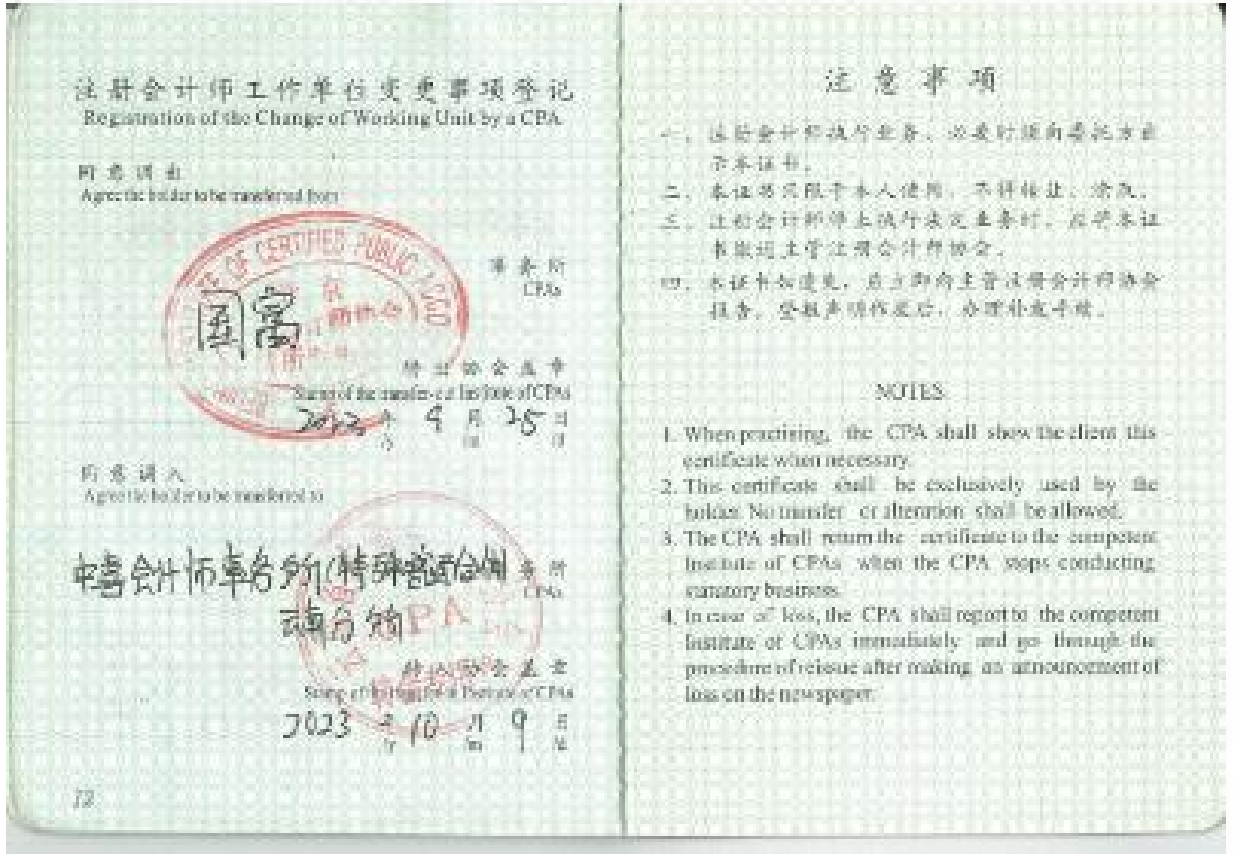 注册会计师工作单位变更事项登记
Registration of the Change of Working Unit by a CPA
同意调出
Agree the holder to be transferred from
OF CERTIFIED PUBLIC ACCO
国富
事务所
CPAs
转出协会盖章
Stamp of the transfer-out Institute of CPAs
2023年9月25日
同意调入
Agree the holder to be transferred to
中喜会计师事务所(特殊普通合伙)
事务所
CPAs
CPA
转入协会盖章
Stamp of the transfer-in Institute of CPAs
2023年10月9日
12
注意事项
一、注册会计师执行业务,必要时须向委托方出
示本证书。
二、本证书只限于本人使用,不得转让、涂改。
三、注册会计师停止执行法定业务时,应将本证
书缴还主管注册会计师协会。
四、本证书如遗失,应立即向主管注册会计师协会
报告,登报声明作废后,办理补发手续。
NOTES
1. When practising, the CPA shall show the client this
certificate when necessary.
2. This certificate shall be exclusively used by the
holder. No transfer or alteration shall be allowed.
3. The CPA shall return the certificate to the competent
Institute of CPAs when the CPA stops conducting
statutory business.
4. In case of loss, the CPA shall report to the competent
Institute of CPAs immediately and go through the
procedure of reissue after making an announcement of
loss on the newspaper.